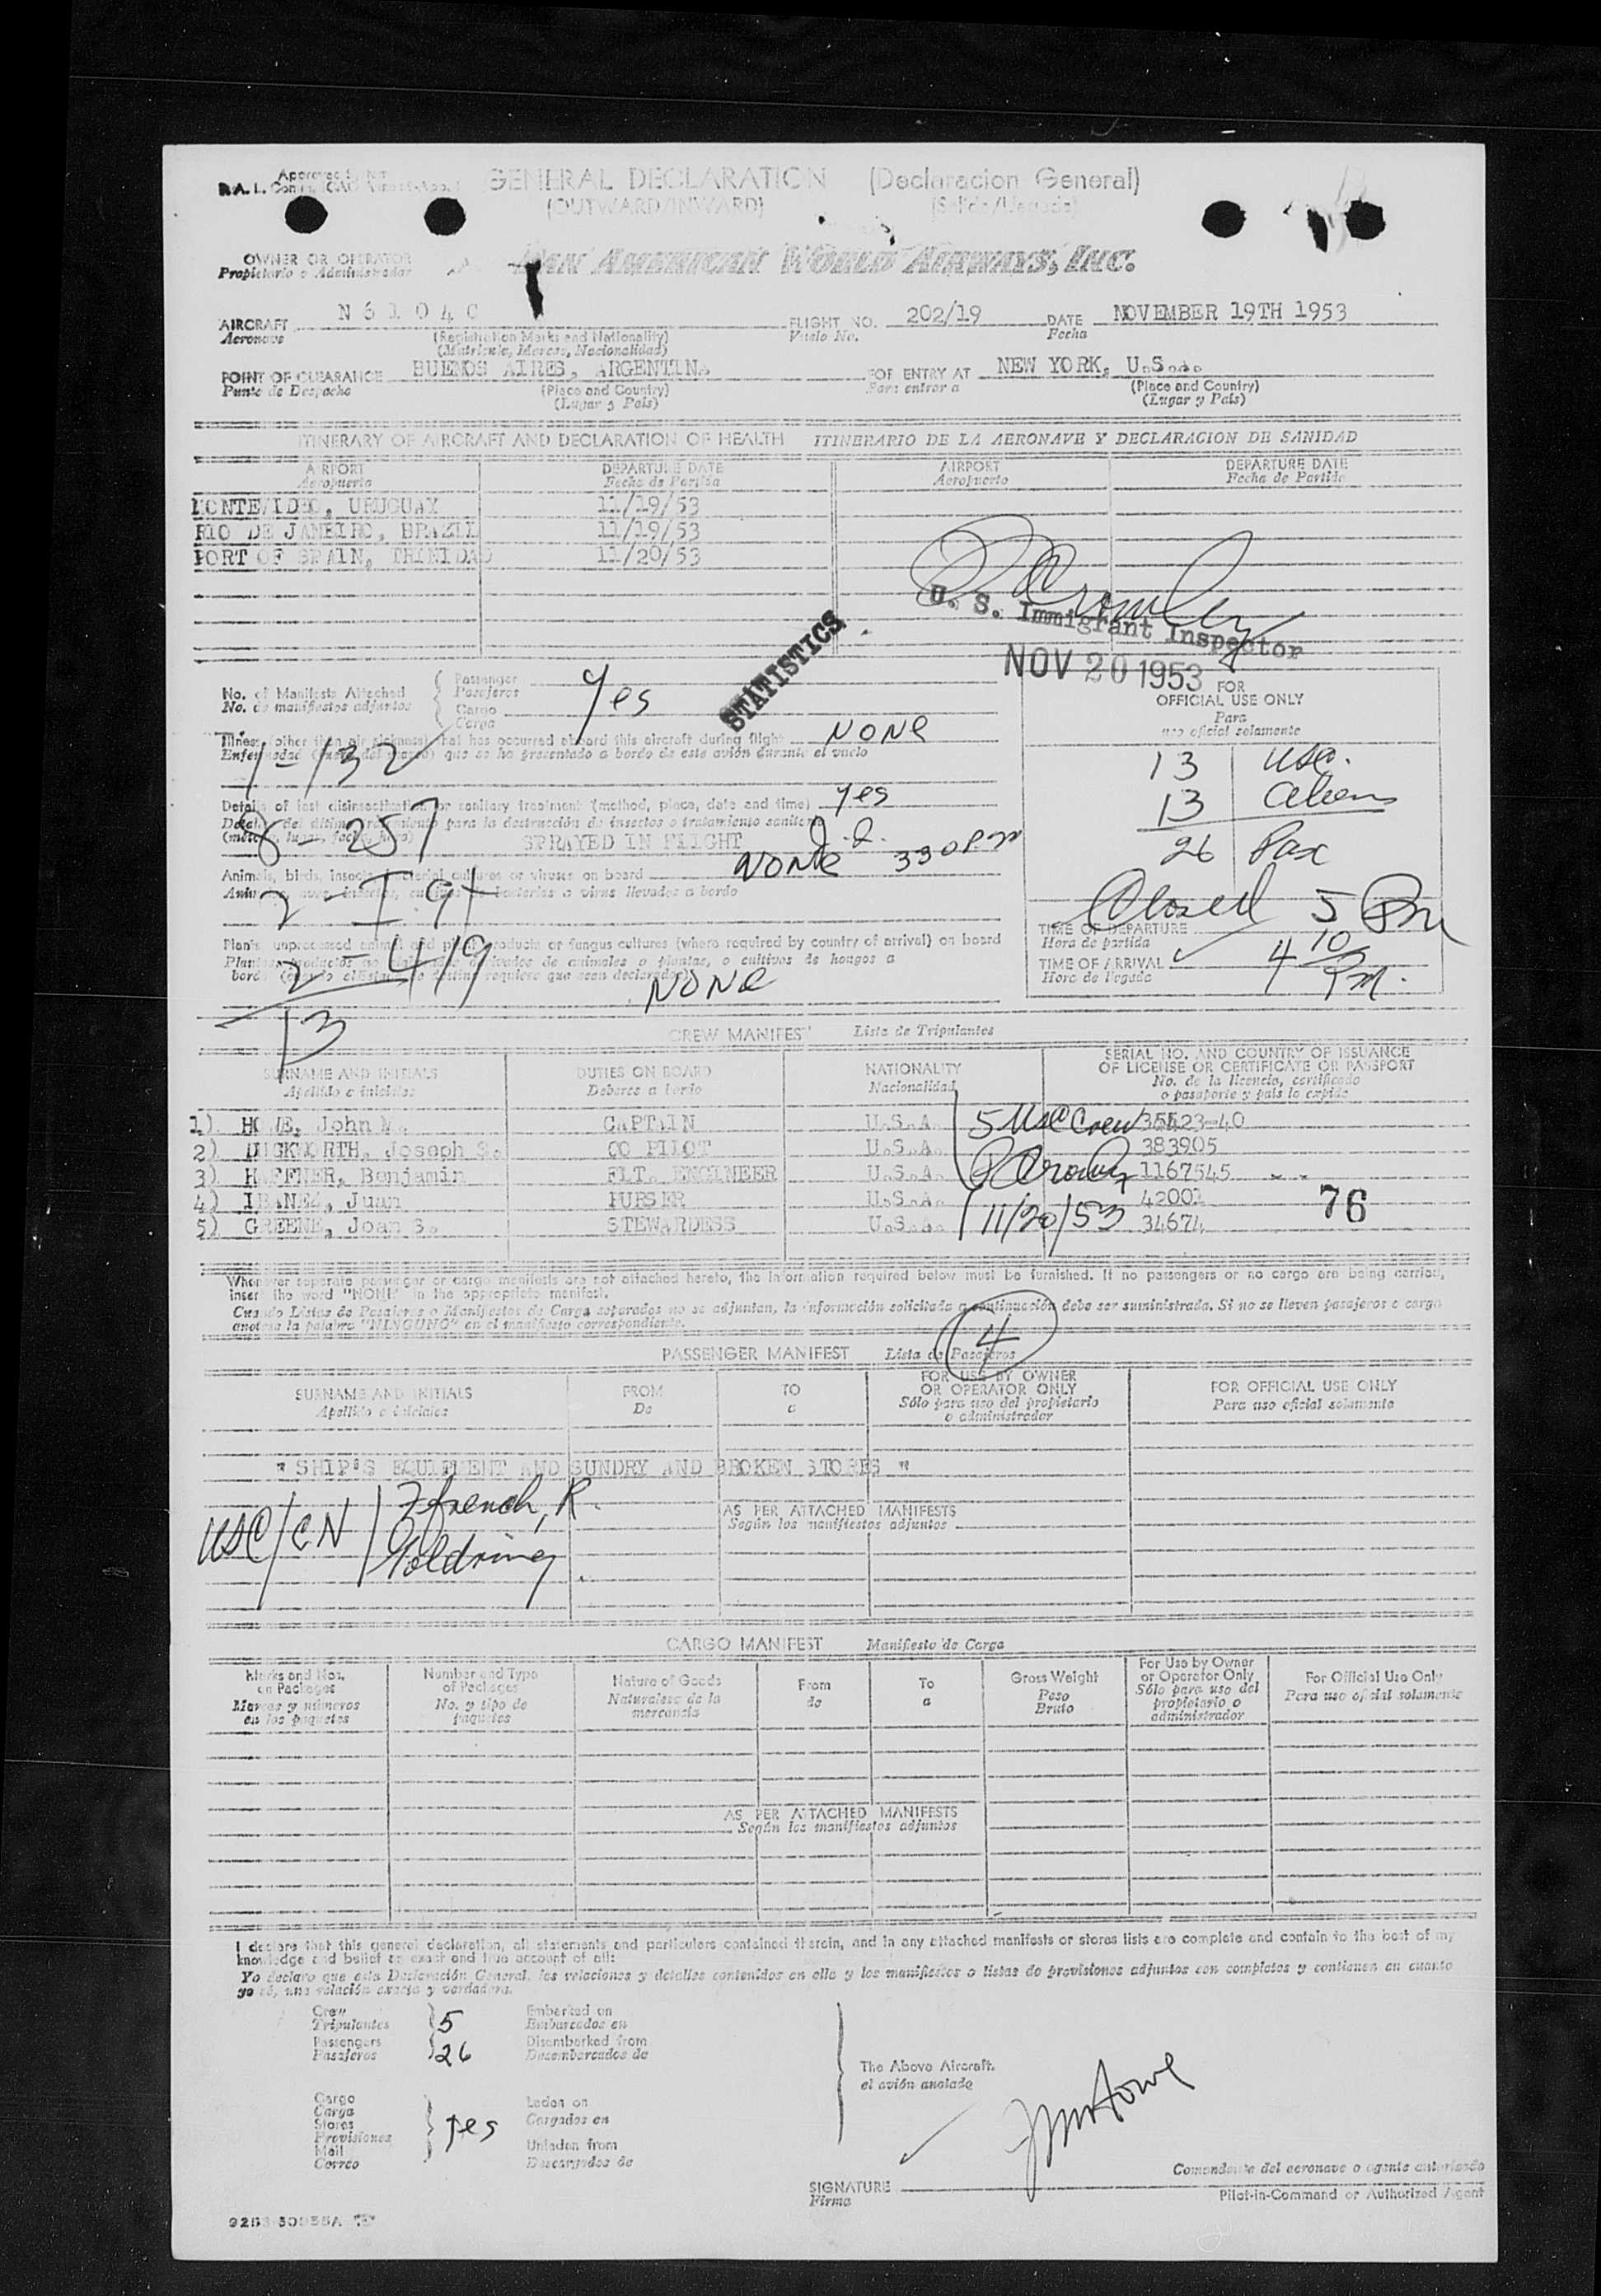 GENERAL DECLARATION (Declaracion General)
(OUTWARD/INWARD) (Salida/Llegada)
OWNER OR OPERATOR
Propietario o Administrador
PAN AMERICAN WORLD AIRWAYS, INC.
AIRCRAFT N 6 1 0 4 C FLIGHT NO. 202/19 DATE NOVEMBER 19TH 1953
Aeronave (Registration Marks and Nationality) Vuelo No. Fecha
(Matricula, Marcas, Nacionalidad)
POINT OF CLEARANCE BUENOS AIRES, ARGENTINA FOR ENTRY AT NEW YORK, U.S.A.
Punto de Despacho (Place and Country) Para entrar a (Place and Country)
(Lugar y Pais) (Lugar y Pais)
ITINERARY OF AIRCRAFT AND DECLARATION OF HEALTH ITINERARIO DE LA AERONAVE Y DECLARACION DE SANIDAD
AIRPORT DEPARTURE DATE AIRPORT DEPARTURE DATE
Aeropuerto Fecha de Partida Aeropuerto Fecha de Partida
MONTEVIDEO, URUGUAY 11/19/53
RIO DE JANEIRO, BRAZIL 11/19/53
PORT OF SPAIN, TRINIDAD 11/20/53
U. S. Immigrant Inspector
NOV 20 1953
STATISTICS
No. of Manifests Attached Passenger Yes
No. de manifiestos adjuntos Pasajeros
Cargo
Carga
FOR
OFFICIAL USE ONLY
Para
uso oficial solamente
Illness (other than air sickness) that has occurred aboard this aircraft during flight NONE
Enfermedad que se ha presentado a bordo de este avión durante el vuelo
1 - 132
13 USC.
13 Aliens
26 Pax
Details of last disinsectization or sanitary treatment (method, place, date and time) yes
Detalle del último tratamiento para la destrucción de insectos o tratamiento sanitario
8 - 257
SPRAYED IN FLIGHT
330 PM
Animals, birds, insects, bacterial cultures or viruses on board NONE
2 - I 91
Closed 5 PM
TIME OF DEPARTURE
Hora de partida
TIME OF ARRIVAL 4 10 PM.
Hora de llegada
Plants, unprocessed animal and plant products or fungus cultures (where required by country of arrival) on board
2 - 419
NONE
13
CREW MANIFEST Lista de Tripulantes
SURNAME AND INITIALS DUTIES ON BOARD NATIONALITY SERIAL NO. AND COUNTRY OF ISSUANCE
OF LICENSE OR CERTIFICATE OR PASSPORT
Apellido e iniciales Deberes a bordo Nacionalidad No. de la licencia, certificado
o pasaporte y pais lo expide
1) HOWE, John M. CAPTAIN U.S.A. 5 USC Crew 35423-40
2) DUCKWORTH, Joseph S. CO PILOT U.S.A. 383905
3) HAFFNER, Benjamin FLT. ENGINEER U.S.A. 1167545
4) IBANEZ, Juan PURSER U.S.A. 42001
5) GREENE, Joan S. STEWARDESS U.S.A. 11/20/53 34674
76
Whenever separate passenger or cargo manifests are not attached hereto, the information required below must be furnished. If no passengers or no cargo are being carried,
insert the word "NONE" in the appropriate manifest.
Cuando Listas de Pasajeros o Manifiestos de Carga separados no se adjuntan, la información solicitada a continuación debe ser suministrada. Si no se lleven pasajeros o carga
anotese la palabra "NINGUNO" en el manifiesto correspondiente.
4
PASSENGER MANIFEST Lista de Pasajeros
SURNAME AND INITIALS FROM TO FOR USE BY OWNER
OR OPERATOR ONLY FOR OFFICIAL USE ONLY
Apellido e iniciales De a Sólo para uso del propietario
o administrador Para uso oficial solamente
" SHIP'S EQUIPMENT AND SUNDRY AND BROKEN STORES "
AS PER ATTACHED MANIFESTS
Según los manifiestos adjuntos
USC/CN French, R.
Goldring
CARGO MANIFEST Manifiesto de Carga
Marks and Nos.
on Packages
Marcas y números
en los paquetes
Number and Type
of Packages
No. y tipo de
paquetes
Nature of Goods
Naturaleza de la
mercancia
From
de
To
a
Gross Weight
Peso
Bruto
For Use by Owner
or Operator Only
Sólo para uso del
propietario o
administrador
For Official Use Only
Para uso oficial solamente
AS PER ATTACHED MANIFESTS
Según los manifiestos adjuntos
I declare that this general declaration, all statements and particulars contained therein, and in any attached manifests or stores lists are complete and contain to the best of my
knowledge and belief an exact and true account of all:
Yo declaro que esta Declaración General, las relaciones y detalles contenidos en ella y los manifiestos o listas de provisiones adjuntos son completos y contienen en cuanto
yo sé, una relación exacta y verdadera.
Crew
Tripulantes 5
Embarked on
Embarcados en
Passengers
Pasajeros 26
Disembarked from
Desembarcados de
The Above Aircraft.
el avión anotado
Cargo
Carga
Stores
Provisiones
Mail
Correo
yes
Laden on
Cargados en
Unladen from
Descargados de
JM Howe
Comandante del aeronave o agente autorizado
SIGNATURE
Firma
Pilot-in-Command or Authorized Agent